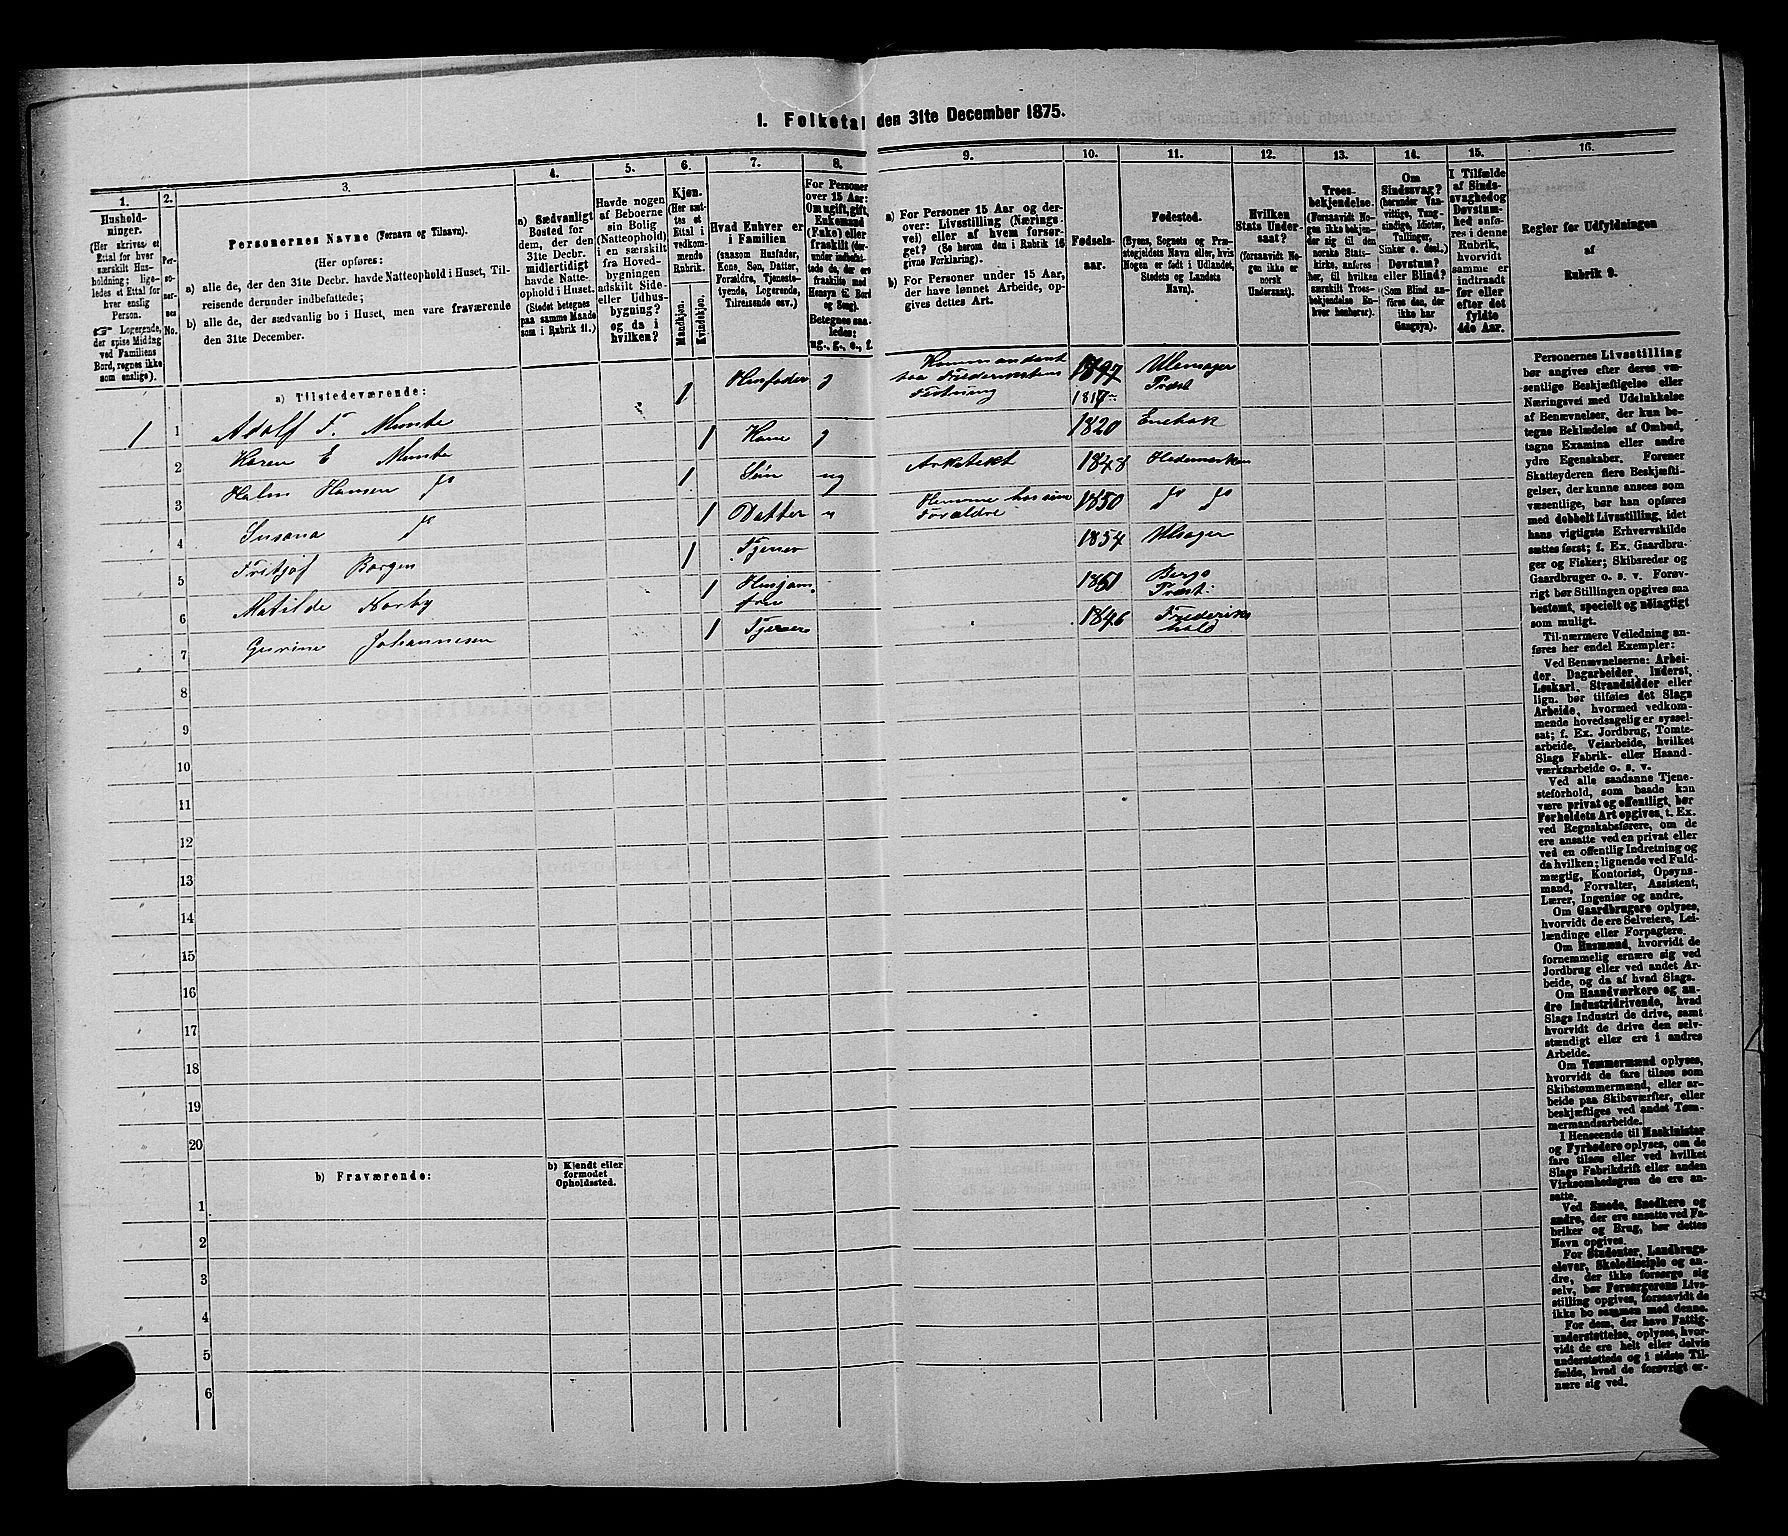 I. Folketal den 31te December 1875.
1.
Hushold-
ninger.
(Her skrives et
Ettal for hver
særskilt Hus-
holdning; lige-
ledes et Ettal for
hver enslig
Person.
☞ Logerende,
der spise Middag
ved Familiens
Bord, regnes ikke
som enslige).
2.
Per-
so-
ner-
nes
No.
3.
Personernes Navne (Fornavn og Tilnavn).
(Her opføres:
a) alle de, der den 31te Decbr. havde Natteophold i Huset, Til-
reisende derunder indbefattede;
b) alle de, der sædvanlig bo i Huset, men vare fraværende
den 31te December.
4.
a) Sædvanligt
Bosted for
dem, der den
31te Decbr.
midlertidigt
havde Natte-
ophold i Huset.
(Stedet betegnes
paa samme Maade
som i Rubrik 11.)
5.
Havde nogen
af Beboerne
sin Bolig
(Natteophold)
i en særskilt
fra Hoved-
bygningen
adskilt Side-
eller Udhus-
bygning?
og da i
hvilken?
6.
Kjøn.
(Her sæt-
tes et
Ettal i
vedkom-
mende
Rubrik.
Mandkjøn.
Kvindekjøn.
7.
Hvad Enhver er
i Familien
(saasom Husfader,
Kone, Søn, Datter,
Forældre, Tjeneste-
tyende, Logerende,
Tilreisende osv.)
8.
For Personer
over 15 Aar:
Om ugift, gift,
Enkemand
(Enke) eller
fraskilt (der-
under indbefat-
tede de, der ere
fraskilte med
Hensyn til Bord
og Seng).
Betegnes saa-
ledes:
ug., g., e., f.
9.
a) For Personer 15 Aar og der-
over: Livsstilling (Nærings-
vei) eller af hvem forsør-
get? (Se herom den i Rubrik 16
givne Forklaring).
b) For Personer under 15 Aar,
der have lønnet Arbeide, op-
gives dettes Art.
10.
Fødsels-
aar.
11.
Fødested.
(Byens, Sognets og Præ-
stegjeldets Navn eller, hvis
Nogen er født i Udlandet,
Stedets og Landets
Navn).
12.
Hvilken
Stats Under-
saat?
(forsaavidt No-
gen ikke er
norsk
Undersaat).
13.
Troes-
bekjendelse.
(Forsaavidt No-
gen ikke bekjen-
der sig til den
norske Stats-
kirke, anføres
her, til hvilken
særskilt Troes-
bekjendelse En-
hver henhører).
14.
Om
Sindssvag?
(herunder Van-
vittige, Tung-
sindige, Idioter,
Tullinger,
Sinker o. desl.)
Døvstum?
eller Blind?
(Som Blind an-
føres den, der
ikke har
Gangsyn).
15.
I Tilfælde
af Sinds-
svaghed og
Døvstum-
hed anfø-
res i denne
Rubrik,
hvorvidt
samme er
indtraadt
før eller
efter det
fyldte
4de Aar.
16.
Regler for Udfyldningen
af
Rubrik 9.
a) Tilstedeværende:
1 1 Adolf F. Munte 1 Husfader g Kommandant paa Frederikstens Festning 1817 Ulensager Præst.
2 Karen E Munte 1 Kone g 1820 Enebak
3 Halm Hansen do 1 Søn ug Arkitekt 1848 Hedemarken
4 Susana do 1 Datter " Hjemme hos sine Forældre 1850 do do
5 Fritjof Borgen 1 Tjener 1854 Ulsager
6 Matilde Norby 1 Husjomfru 1851 Bergs Præst.
7 Gurine Johannesen 1 Tjener 1846 Frederikshald
8
9
10
11
12
13
14
15
16
17
18
19
20
b) Fraværende:
b) Kjendt eller
formodet
Opholdssted.
1
2
3
4
5
6
Personernes Livsstilling
bør angives efter deres væ-
sentlige Beskjæftigelse eller
Næringsvei med Udelukkelse
af Benævnelser, der kun be-
tegne Beklædelse af Ombud,
tagne Examina eller andre
ydre Egenskaber. Forener
Skatteyderen flere Beskjæfti-
gelser, der kunne ansees som
væsentlige, bør han opføres
med dobbelt Livsstilling, idet
hans vigtigste Erhvervskilde
sættes først; f. Ex. Gaardbru-
ger og Fisker; Skibsreder og
Gaardbruger o. s. v. Forøv-
rigt bør Stillingen opgives saa
bestemt, specielt og nøiagtigt
som muligt.
Til nærmere Veiledning an-
føres her endel Exempler:
Ved Benævnelserne: Arbei-
der, Dagarbeider, Inderst,
Løskarl, Strandsidder eller
lign. bør tilføies det Slags
Arbeide, hvormed vedkom-
mende hovedsagelig er syssel-
sat; f. Ex. Jordbrug, Tomte-
arbeide, Veiarbeide, hvilket
Slags Fabrik- eller Haand-
værksarbeide o. s. v.
Ved alle saadanne Tjene-
steforhold, som baade kan
være privat og offentligt, bør
Forholdets Art opgives, t. Ex.
ved Regnskabsførere, om de
ere ansatte ved en privat eller
ved en offentlig Indretning og
da hvilken; lignende ved Fuld-
mægtig, Kontorist, Opsyns-
mand, Forvalter, Assistent,
Lærer, Ingeniør og andre.
Om Gaardbrugere oplyses,
hvorvidt de ere Selveiere, Lei-
lændinge eller Forpagtere.
Om Husmænd, hvorvidt de
fornemmelig ernære sig ved
Jordbrug eller ved andet Ar-
beide, og da af hvad Slags.
Om Haandværkere og an-
dre Industridrivende, hvad
Slags Industri de drive, samt
hvorvidt de drive den selv-
stændigt eller ere i andres
Arbeide.
Om Tømmermænd oplyses,
hvorvidt de fare tilsøs som
Skibstømmermænd, eller ar-
beide paa Skibsværfter, eller
beskjæftiges ved andet Tøm-
mermandsarbeide.
I Henseende til Maskinister
og Fyrbødere oplyses, om de
fare tilsøs eller ved hvilket
Slags Fabrikdrift eller anden
Virksomhedsgren de ere an-
satte.
Ved Smede, Snedkere og
andre, der ere ansatte ved Fa-
briker og Brug, bør dettes
Navn opgives.
For Studenter, Landbrugs-
elever, Skoledisciple og an-
dre, der ikke forsørge sig
selv, bør Forsørgerens Livs-
stilling opgives, forsaavidt de
ikke bo sammen med denne.
For dem, der have Fattig-
understøttelse, oplyses, hvor-
vidt de ere helt eller delvis
understøttede og i sidste Til-
fælde, hvad de forøvrigt er-
nære sig ved.